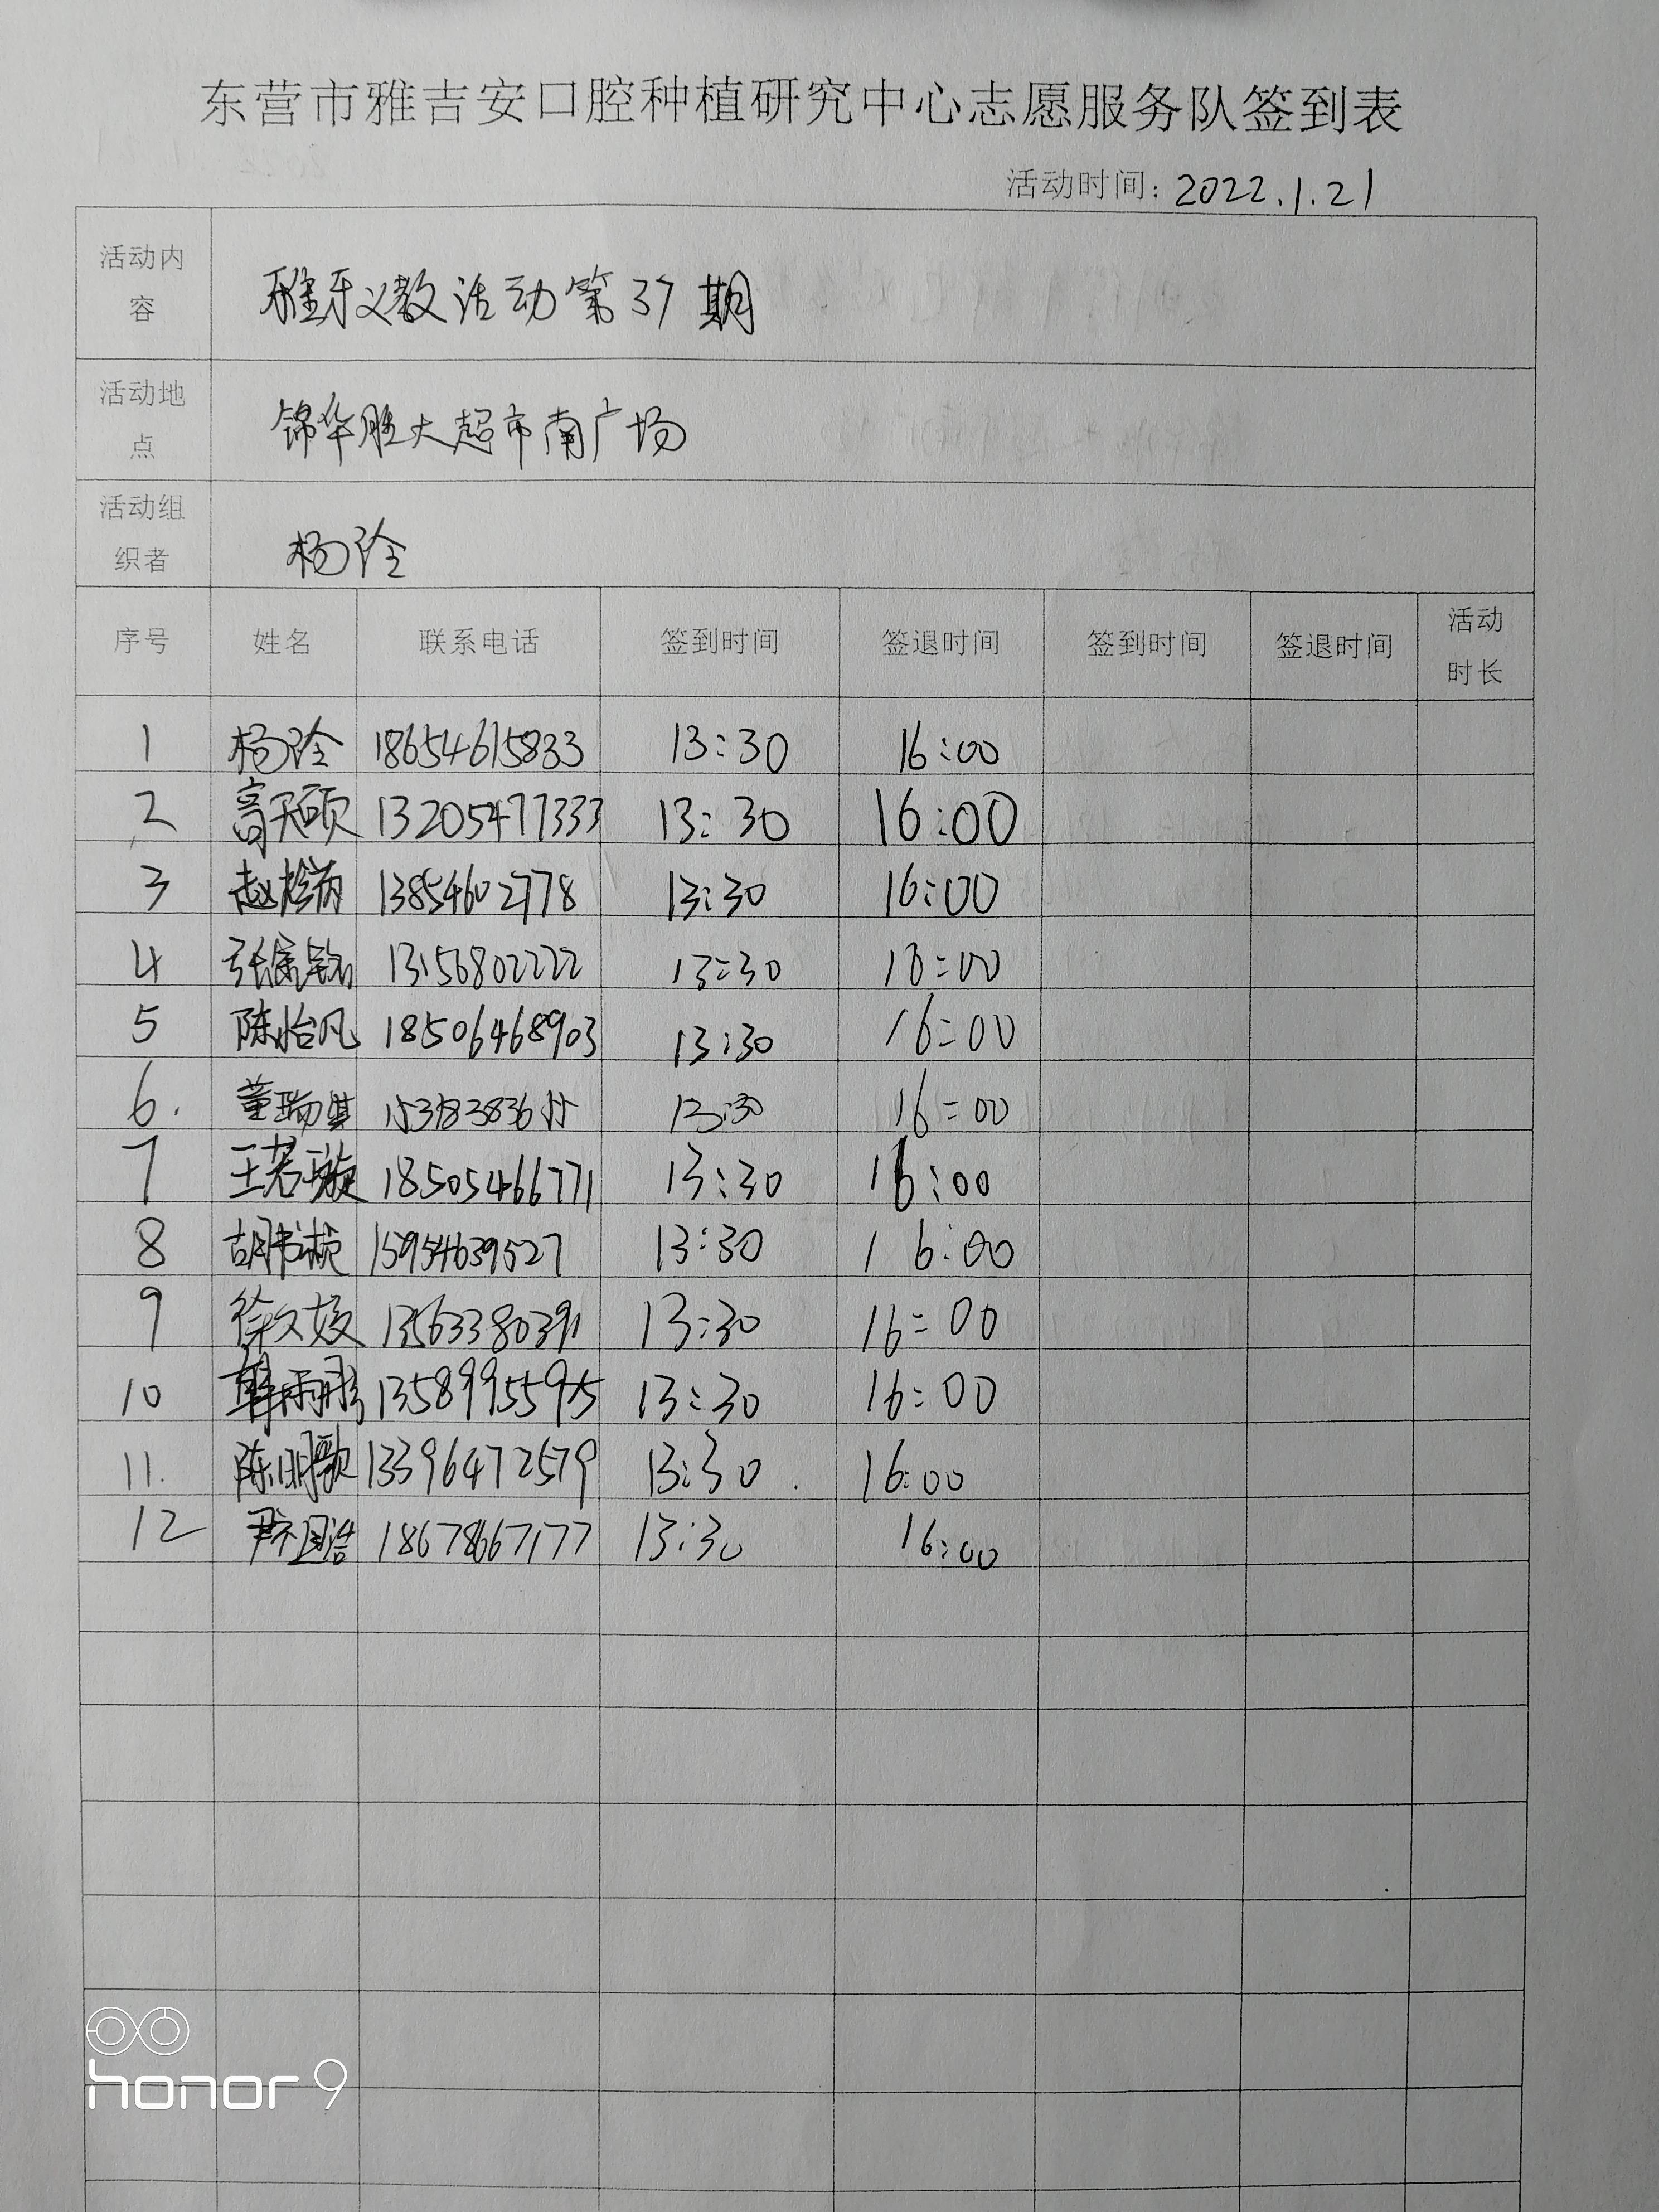 东营市雅吉安口腔种植研究中心志愿服务队签到表
活动时间：2022.1.21
活动内容 雅乐义教活动第37期
活动地点 锦华胜大超市南广场
活动组织者 杨
序号 姓名 联系电话 签到时间 签退时间 签到时间 签退时间 活动时长
1 杨 18654615833 13:30 16:00
2 高天硕 13205477333 13:30 16:00
3 赵 13854602778 13:30 16:00
4 张 13156802222 13:30 16:00
5 陈怡凡 18506468903 13:30 16:00
6. 董瑞琪 13:30 16:00
7 王若璇 18505466771 13:30 16:00
8 胡书桢 15954639527 13:30 16:00
9 徐 13563380391 13:30 16:00
10 韩雨彤 13589955955 13:30 16:00
11. 陈明歌 13396472579 13:30 16:00
12 尹 浩 18678667177 13:30 16:00
honor 9